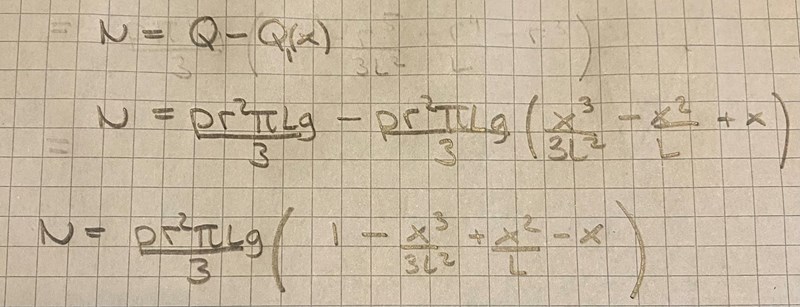 N = Q - Q₁(x)
N = ρr²πLg/3 - ρr²πLg/3 (x³/3L² - x²/L + x)
N = ρr²πLg/3 (1 - x³/3L² + x²/L - x)